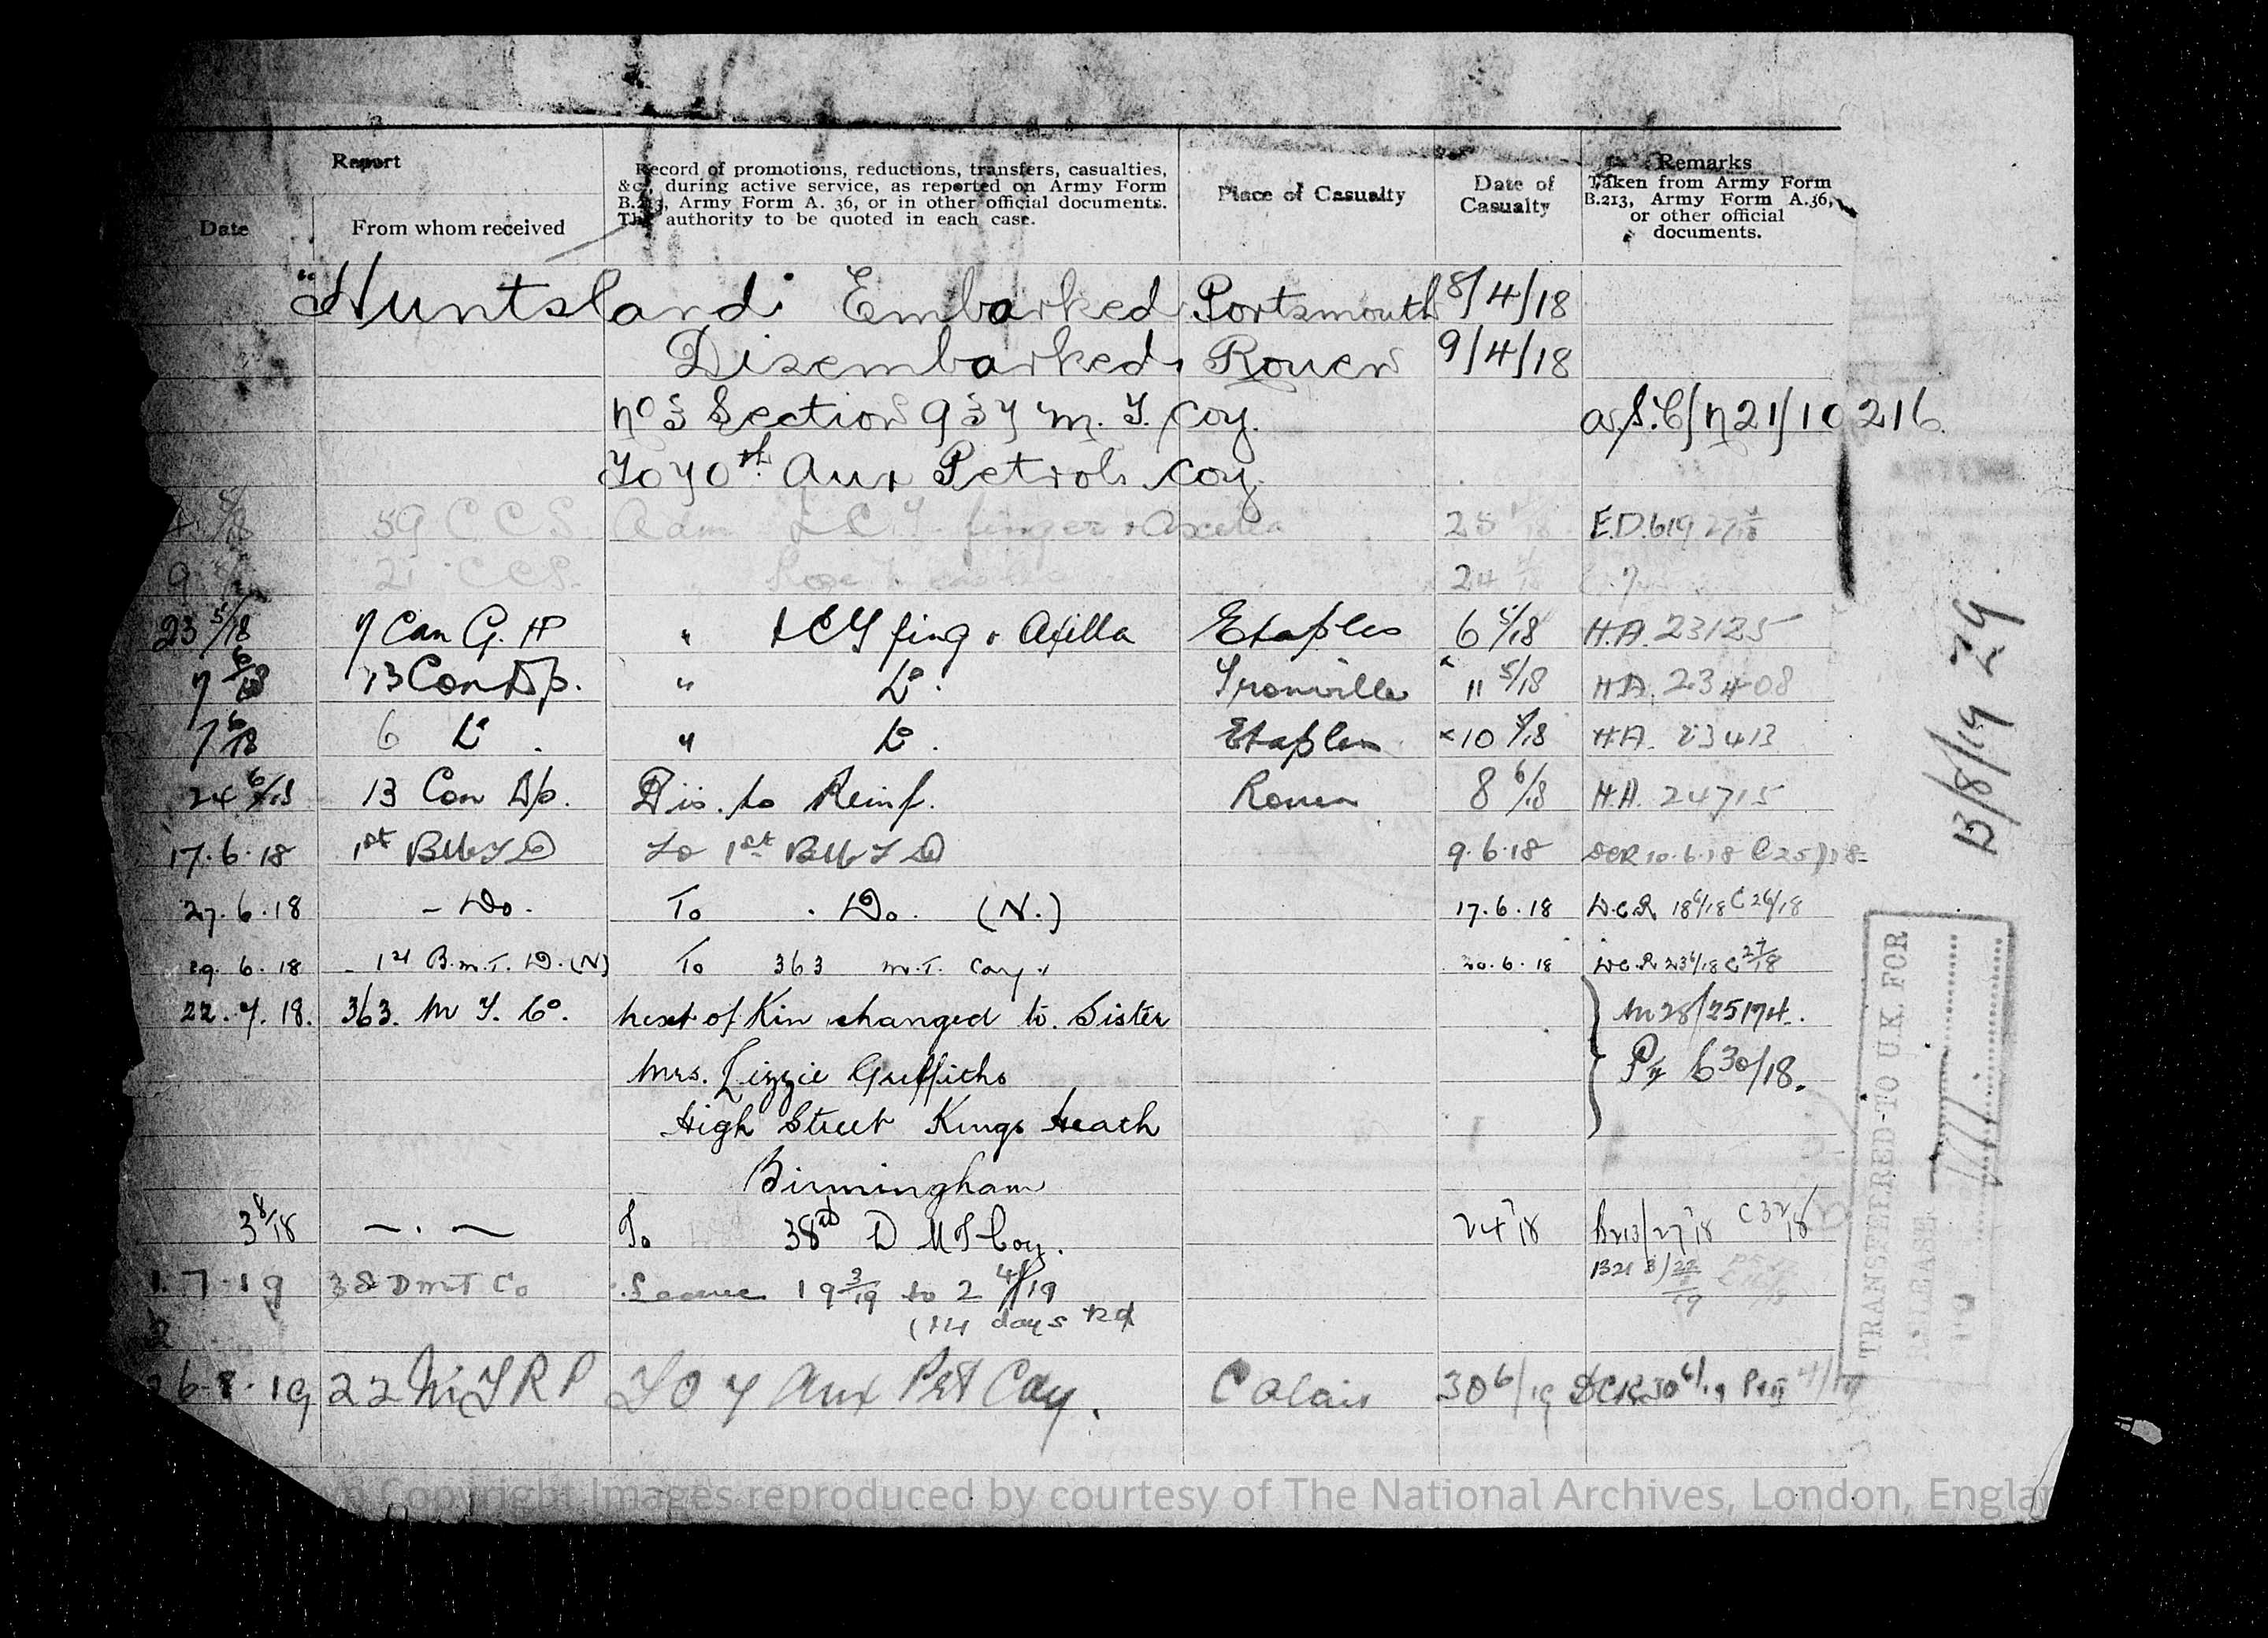 Report
Date
From whom received
Record of promotions, reductions, transfers, casualties, &c., during active service, as reported on Army Form B.213, Army Form A. 36, or in other official documents. The authority to be quoted in each case.
Place of Casualty
Date of Casualty
Remarks
Taken from Army Form B.213, Army Form A.36, or other official documents.
"Huntsland" Embarked Portsmouth 8/4/18
Disembarked Rouen 9/4/18
No 3 Section 937 M.T. Coy. A.S.C/N21/10216
To 70th Aux Petrol Coy
59 CCS Adm I.C.T. finger & Axilla 25 E.D.619
21 CCS 24
23 5/18 7 Can G. H " I C T fing & Axilla Etaples 6 5/18 H.A. 23125
7 6/18 13 Con Dp. " Do. Trouville 11 5/18 H.A. 23408
7 6/18 6 Do. " Do. Etaples 10 5/18 H.A. 23413
24 6/18 13 Con Dp. Dis. to Reinf. Rouen 8 6/18 H.A. 24715
17.6.18 1st BMTD To 1st BMTD 9.6.18 DCR 10.6.18 C25/18
27.6.18 - Do. To Do. (N.) 17.6.18 D.C.R 18 6/18 C26/18
29.6.18 1st B.M.T.D.(N) To 363 M.T. Coy. 20.6.18 D.C.R 23 6/18 C27/18
22.7.18. 363. M T. Co. Next of Kin changed to Sister M28/25174.
Mrs. Lizzie Griffiths 630/18.
High Street Kings Heath
Birmingham
3 8/18 To 38th D M T Coy. 24 7 18 B213/27 7 18 C32/18
1.7.19 38 DMT Co Leave 19 3/19 to 2 4/19 B213/22
(14 days
26.8.19 22 M.T.R.P To 7 Aux Pet Coy. Calais 30 6/19 DCR 30 6/19
13/8/19 29
TRANSFERRED TO U.K. FOR
RELEASE
Copyright Images reproduced by courtesy of The National Archives, London, Englan